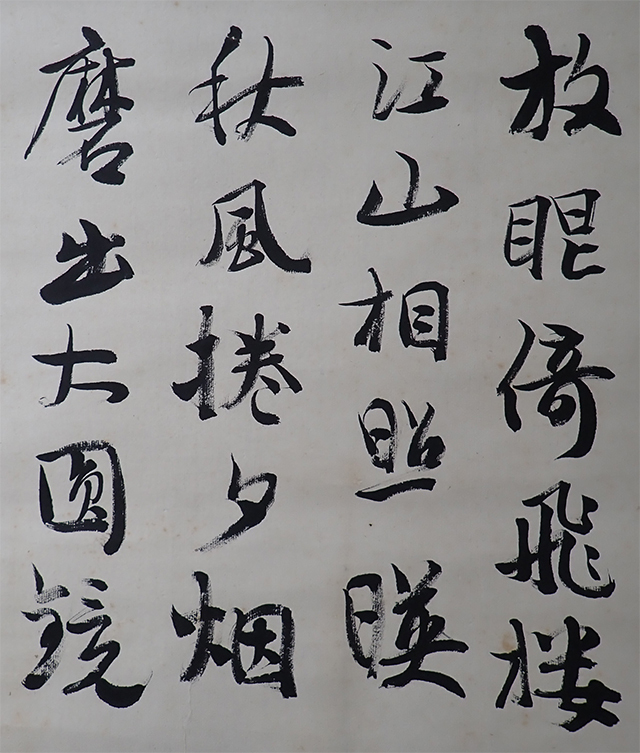 放眼倚飛楼
江山相照暎
秋風捲夕烟
磨出大圓鏡